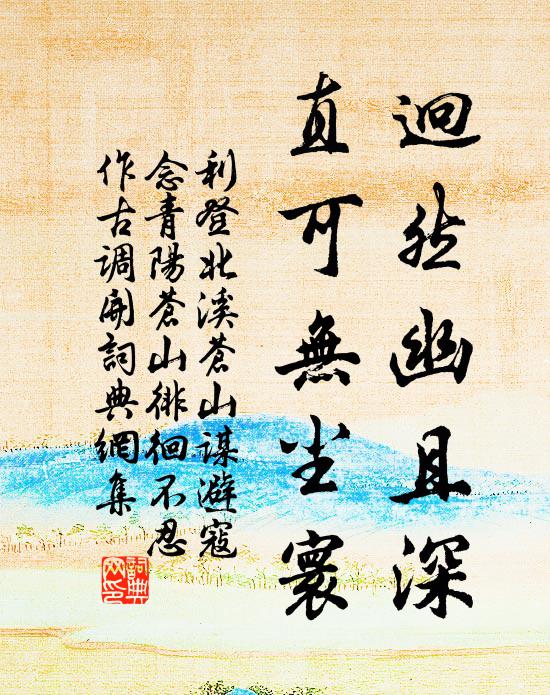 迥然幽且深
直可無尘寰
利登北溪蒼山謀避寇
念青陽蒼山徘徊不忍
作古調開詞典網集
詞典网印